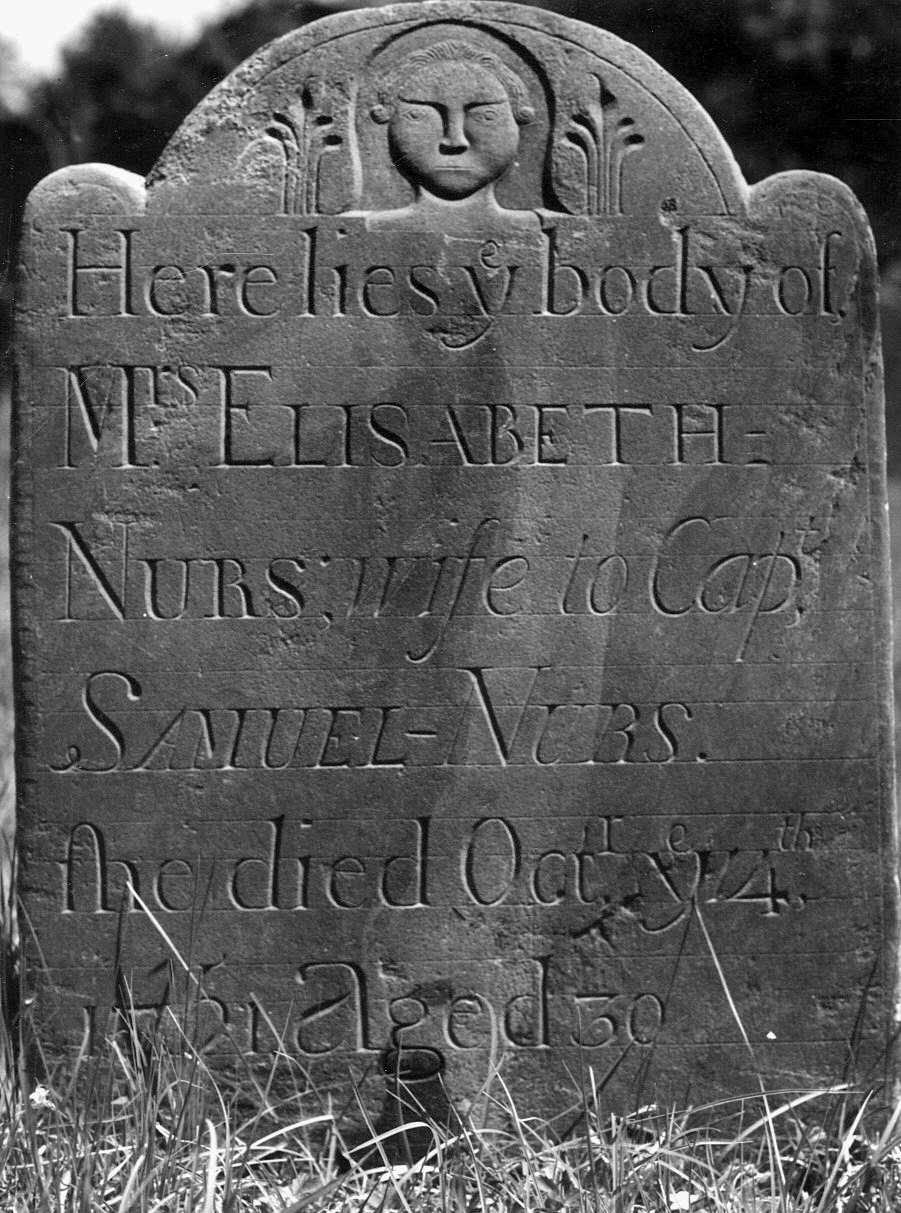 Here lies yᵉ body of,
Mʳˢ ELISABETH-
NURS; wife to Capᵗ.
SAMUEL-NURS.
ſhe died Octʳ. yᵉ 14ᵗʰ.
1721 aged 30